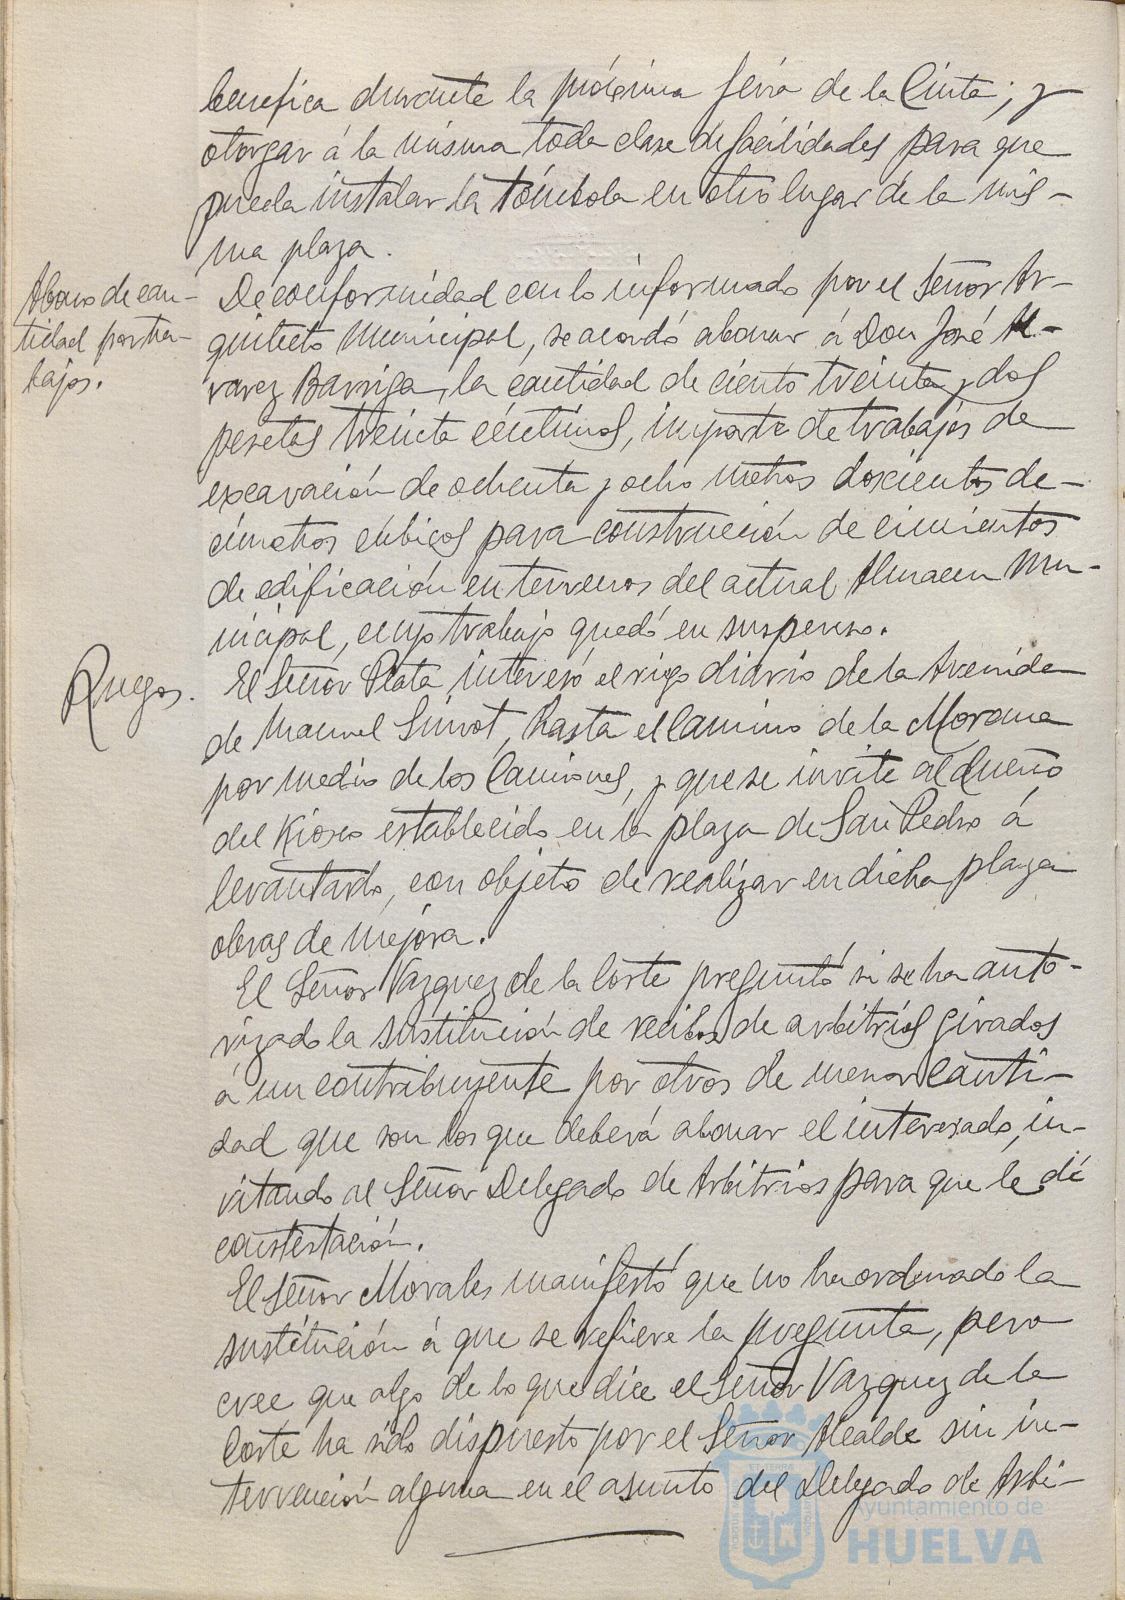 benéfica durante la próxima feria de la Cinta; y
otorgar á la misma toda clase de facilidades para que
pueda instalar la tómbola en otro lugar de la mis-
ma plaza.
Abono de can-
tidad por tra-
bajos.
De conformidad con lo informado por el Señor Ar-
quitecto Municipal, se acordó abonar á Don José Al-
varez Barriga, la cantidad de ciento treinta y dos
pesetas treinta céntimos, importe de trabajos de
excavación de ochenta y ocho metros doscientos de-
címetros cúbicos para construcción de cimientos
de edificación en terrenos del actual Almacen Mu-
nicipal, cuyo trabajo quedó en suspenso.
Ruegos.
El Señor Plata interesó el riego diario de la Avenida
de Manuel Siurot, hasta el Camino de la Morana
por medio de los Camiones, y que se invite al dueño
del Kiosco establecido en la plaza de San Pedro á
levantarlo, con objeto de realizar en dicha plaza
obras de mejora.
El Señor Vazquez de la Corte preguntó si se ha auto-
rizado la sustitución de recibos de arbitrios girados
á un contribuyente por otros de menor canti-
dad que son los que deberá abonar el interesado, in-
vitando al Señor Delegado de Arbitrios para que le dé
contestación.
El Señor Morales manifestó que no ha ordenado la
sustitución á que se refiere la pregunta, pero
cree que algo de lo que dice el Señor Vazquez de la
Corte ha sido dispuesto por el Señor Alcalde sin in-
tervención alguna en el asunto del Delegado de Arbi-
Ayuntamiento de
HUELVA